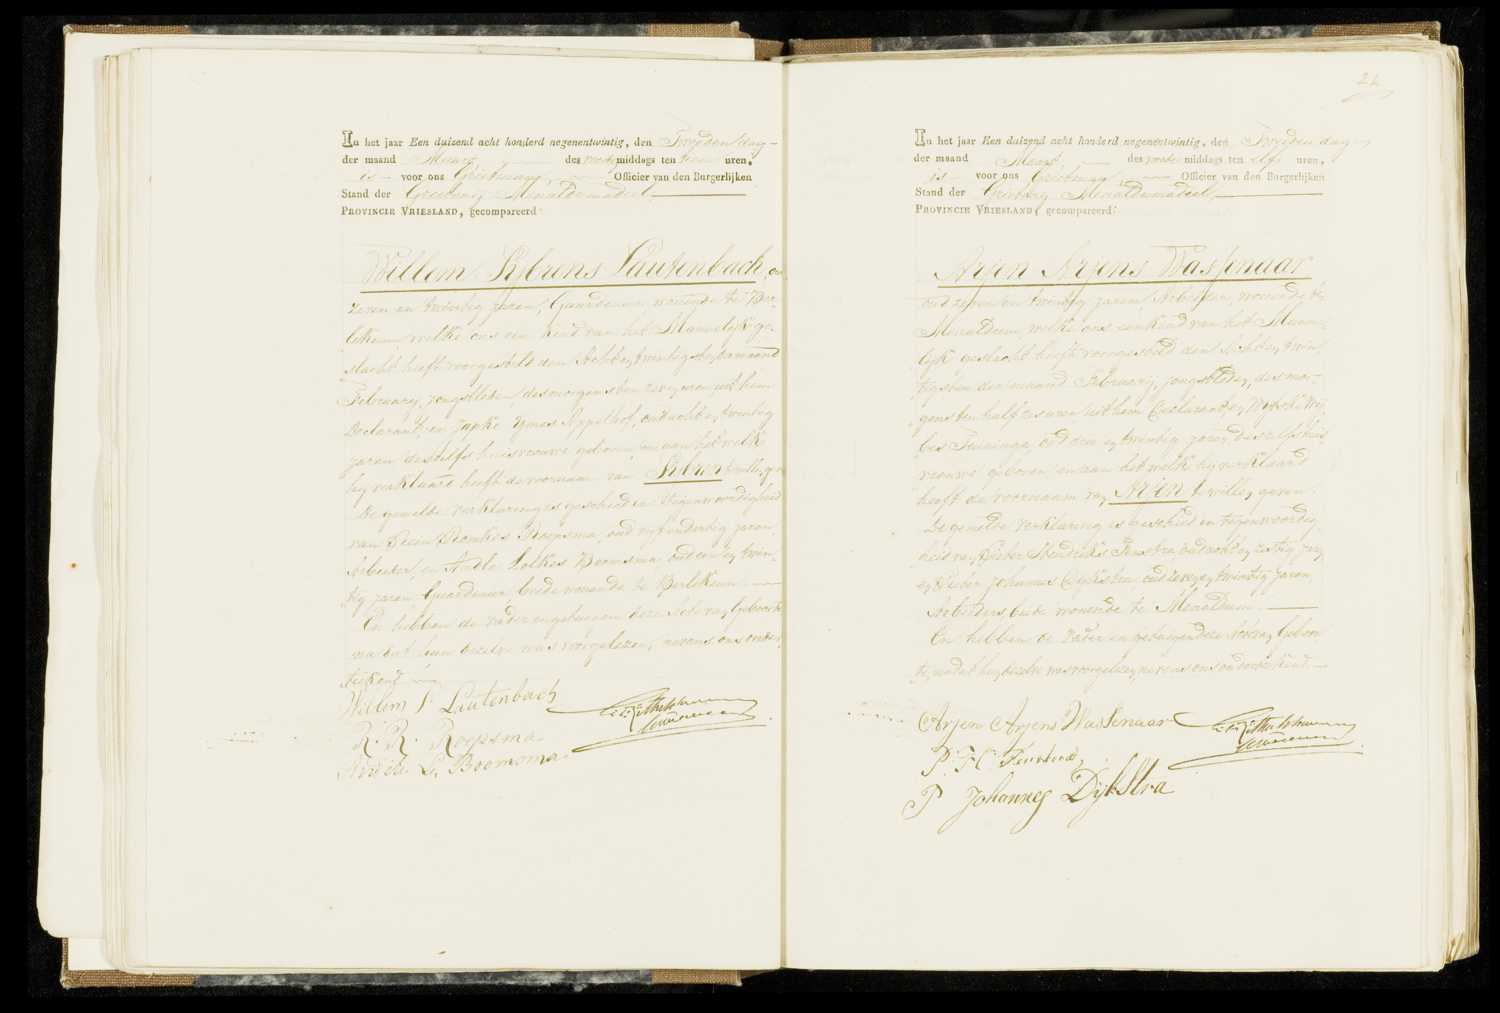 In het jaar Een duizend acht honderd negenentwintig, den Tweeden dag
der maand Maart des voor middags ten tien uren,
is voor ons Grietman, Officier van den Burgerlijken
Stand der Grietenij Menaldumadeel,
PROVINCIE VRIESLAND, gecompareerd:
Willem Sybrens Lautenbach, oud
zeven en twintig jaren, Gardenier, wonende te Ber-
likum welke ons een kind van het Mannelijk ge-
slacht heeft voorgesteld den Acht en twintigsten der maand
February, jongstleden, des morgens ten zeven uren, uit hem
Declarant, en Japke Ymes Appelhof, oud acht en twintig
jaren deszelfs huisvrouwe geboren en aan het welk
hij verklaard heeft de voornaam van Sybren te willen geven
De gemelde verklaring is geschied in tegenwoordigheid
van Roopsma, oud jaren,
Arbeider, en Andle Lolkes Boomsma oud een en twin-
tig jaren Gardenier beide wonende te Berlikum.
En hebben de vader en getuigen deze Acte van Geboorte
na dat hun dezelve was voorgelezen, nevens ons onder-
tekend
Willem S Lautenbach
R. R. Roopsma
Andele L. Boomsma
22
In het jaar Een duizend acht honderd negenentwintig, den Tweeden dag
der maand Maart des voor middags ten elf uren,
is voor ons Grietman, Officier van den Burgerlijken
Stand der Grietenij Menaldumadeel,
PROVINCIE VRIESLAND, gecompareerd:
Arjen Arjens Wassenaar
oud zeven en twintig jaren, Arbeider, wonende te
Menaldum, welke ons een kind van het Manne-
lijk geslacht heeft voorgesteld den Acht en twin
tigsten der maand February, jongstleden, des mor-
gens ten half zes uren uit hem Declarant en
Tuininga, oud drie en twintig jaren deszelfs huis
vrouwe geboren en aan het welk hij verklaard
heeft de voornaam van Arjen te willen geven.
De gemelde verklaring is geschied in tegenwoordig
heid van Pieter oud acht en zestig jaren,
en Pieter Johannes Dijkstra, oud zeven en twintig jaren,
Arbeiders, beide wonende te Menaldum.
En hebben de vader en getuigen deze Acte van Geboor
te, nadat hun dezelve was voorgelezen, nevens ons ondertekend.
Arjen Arjens Wassenaar
P
P Johannes Dijkstra